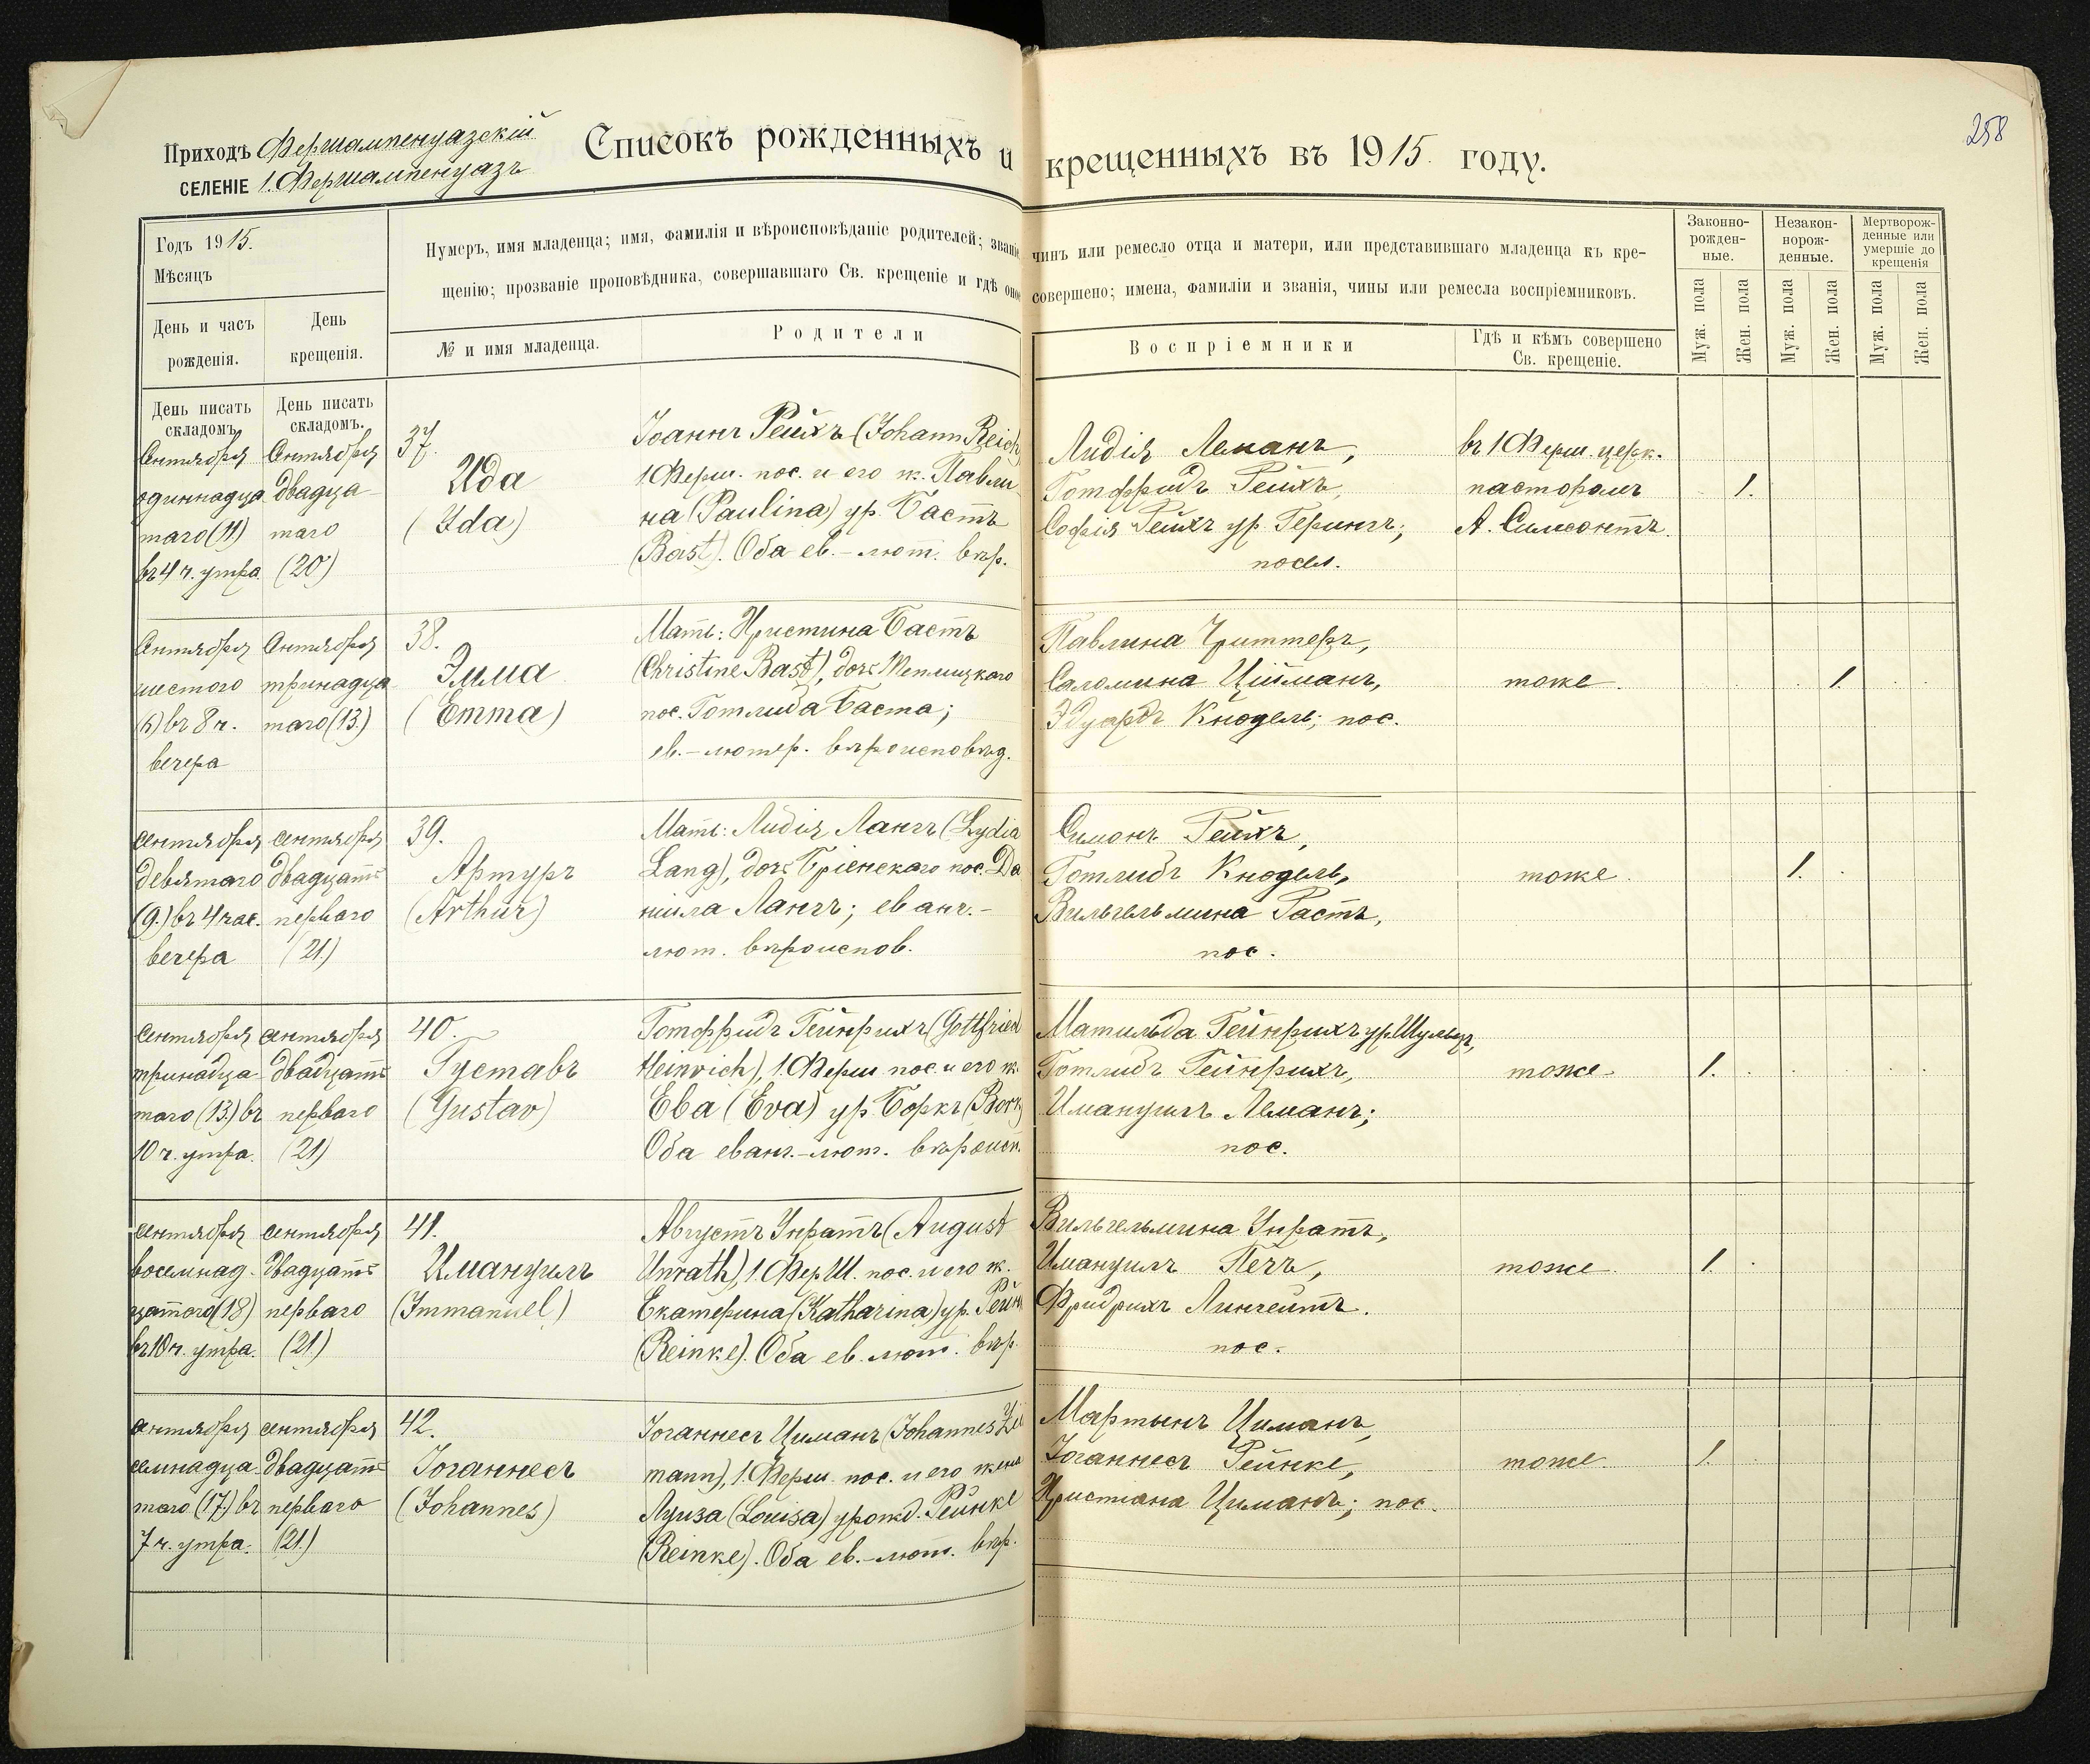 258
Приходъ Фершампенуазскій
селеніе 1. Фершампенуазъ
Списокъ рожденныхъ и крещенныхъ въ 1915. году.
Годъ 1915.
Мѣсяцъ
День и часъ рожденія.
День крещенія.
Нумеръ, имя младенца; имя, фамилія и вѣроисповѣданіе родителей; званіе чинъ или ремесло отца и матери, или представившаго младенца къ кре-
щенію; прозваніе проповѣдника, совершавшаго Св. крещеніе и гдѣ оное совершено; имена, фамиліи и званія, чины или ремесла воспріемниковъ.
№ и имя младенца.
Родители
Воспріемники
Гдѣ и кѣмъ совершено
Св. крещеніе.
Законно-
рожден-
ные.
Незакон-
норож-
денные.
Мертворож-
денные или
умершіе до
крещенія
Муж. пола
Жен. пола
Муж. пола
Жен. пола
Муж. пола
Жен. пола
День писать
складомъ.
День писать
складомъ.
Сентября
одиннадца
таго (11)
въ 4 ч. утра
Сентября
двадца-
таго
(20)
37.
Ида
(Ida)
Іоаннъ Рейхъ (Johann Reich)
1 Ферш. пос. и его ж. Павли
на (Paulina) ур. Бастъ
(Bast). Оба ев.-лют. вѣр.
Лидія Леманъ,
Готфридъ Рейхъ,
Софія Рейхъ ур. Герингъ;
посел.
въ 1 Ферш. церк.
пасторомъ
А. Симсонтъ.
1.
Сентября
шестого
(6) въ 8 ч.
вечера
Сентября
тринадца-
таго (13.)
38.
Эмма
(Emma)
Мать: Христина Бастъ
(Christine Bast), дочь
пос. Готлида Баста;
ев.-лютер. вѣроисповѣд.
Павлина
Саломина Цийманъ,
Эдуардъ Кнодель; пос.
тоже
1.
сентября
девятаго
(9.) въ 4 час.
вечера
сентября
двадцать
перваго
(21.)
39.
Артуръ
(Arthur)
Мать: Лидія Лангъ (Lydia
Lang), дочь Бріенскаго пос. Да
ніила Лангъ; еванг.-
лют. вѣроиспов.
Симонъ Рейхъ,
Готлибъ Кнодель,
Вильгельмина Растъ,
пос.
тоже
1.
сентября
тринадца-
таго (13.) въ
10 ч. утра.
сентября
двадцать
перваго
(21)
40.
Густавъ
(Gustav)
Готфридъ Гейнрихъ (Gottfried
Heinrich), 1. Ферш пос. и его ж.
Ева (Eva) ур. Боркъ (Bork)
Оба еванг.-лют. вѣроисп.
Матильда Гейнрихъ ур. Шульцъ,
Готлибъ Гейнрихъ,
Имануилъ Леманъ;
пос.
тоже
1.
сентября
восемнад-
цатого (18)
въ 10 ч. утра.
сентября
двадцать
перваго
(21.)
41.
Имануилъ
(Immanuel)
Августъ Унратъ (August
Unrath), 1. Ферш. пос. и его ж.
Екатерина (Katharina) ур. Рейн
(Reinke). Оба ев. лют. вѣр.
Вильгельмина Унратъ,
Имануилъ Печъ,
Фридрихъ
пос.
тоже
1.
сентября
семнадца-
таго (17.) въ
7 ч. утра.
сентября
двадцать
перваго
(21.)
42.
Іоганнесъ
(Johannes)
Іоганнесъ Циманъ (Johannes Zie
mann), 1. Ферш. пос. и его жена
Луиза (Louisa) урожд. Рейнке
(Reinke). Оба ев.-лют. вѣр.
Мартынъ Циманъ,
Іоганнесъ Рейнке,
Христиана Циманъ; пос.
тоже
1.